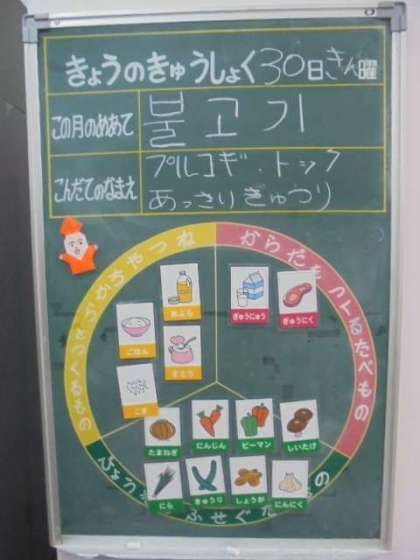 きょうのきゅうしょく 30日 きん曜
この月のめあて 불고기
こんだてのなまえ プルコギ・トック
あっさりきゅうり
からだをつくるたべもの
あぶら
ぎゅうにゅう
ぎゅうにく
ごはん
さとう
ごま
たまねぎ
にんじん
ピーマン
しいたけ
にら
きゅうり
しょうが
にんにく
ふせぐ